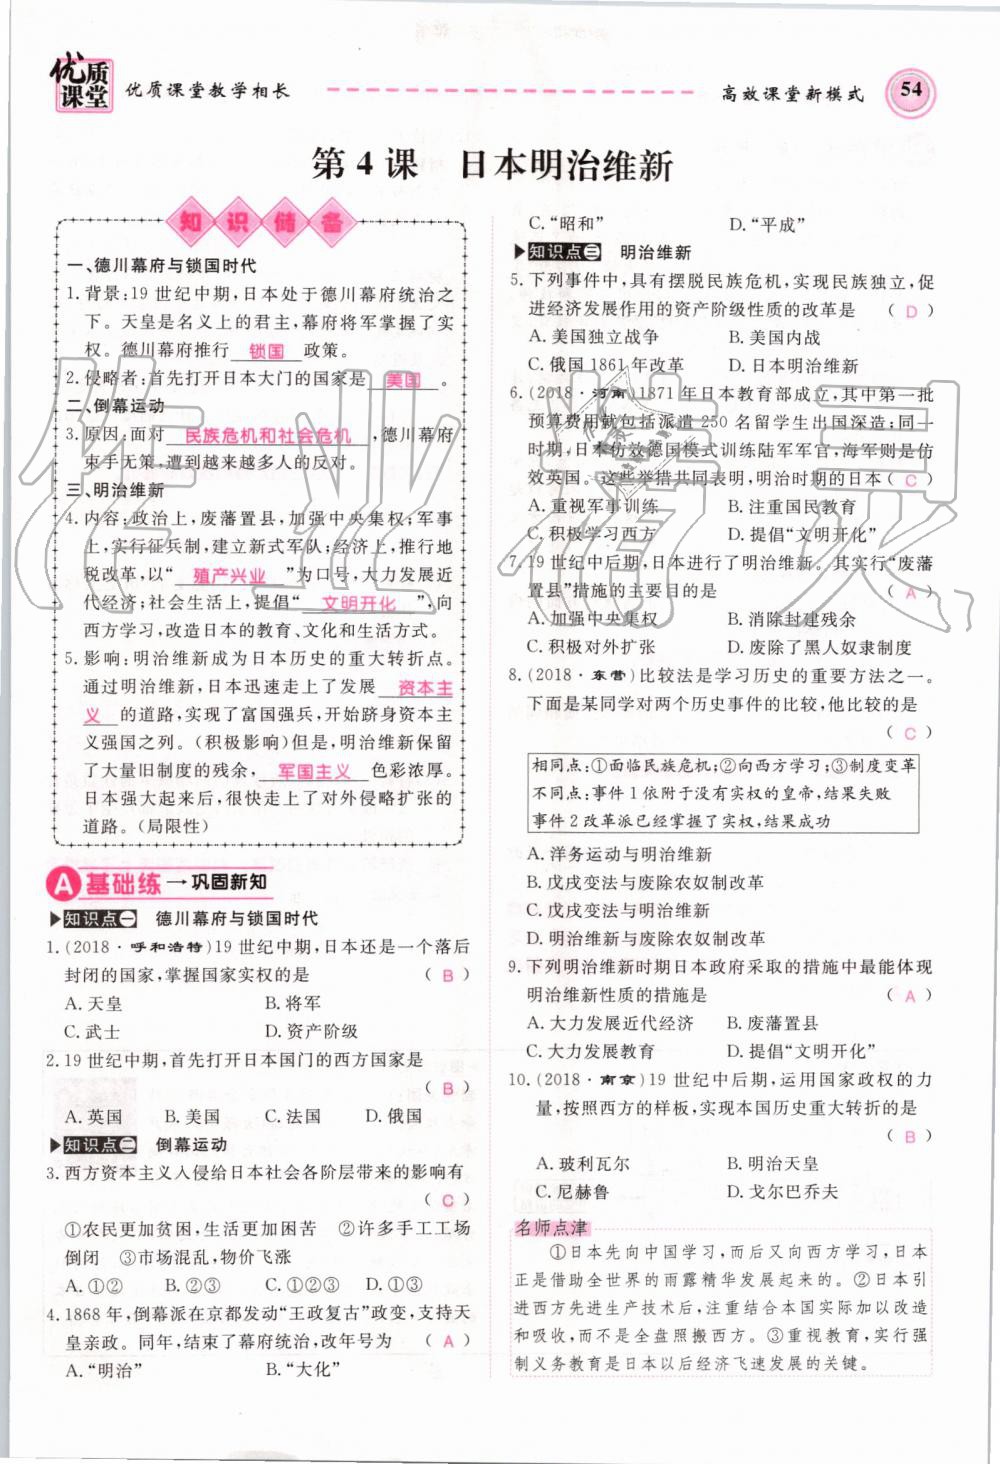 优质课堂
优质课堂教学相长
高效课堂新模式
54
第4课 日本明治维新
知识储备
一、德川幕府与锁国时代
1. 背景:19世纪中期,日本处于德川幕府统治之
下。天皇是名义上的君主,幕府将军掌握了实
权。德川幕府推行 锁国 政策。
2. 侵略者:首先打开日本大门的国家是 美国 。
二、倒幕运动
3. 原因:面对 民族危机和社会危机 ,德川幕府
束手无策,遭到越来越多人的反对。
三、明治维新
4. 内容:政治上,废藩置县,加强中央集权;军事
上,实行征兵制,建立新式军队;经济上,推行地
税改革,以“ 殖产兴业 ”为口号,大力发展近
代经济;社会生活上,提倡“ 文明开化 ”,向
西方学习,改造日本的教育、文化和生活方式。
5. 影响:明治维新成为日本历史的重大转折点。
通过明治维新,日本迅速走上了发展 资本主
义 的道路,实现了富国强兵,开始跻身资本主
义强国之列。(积极影响)但是,明治维新保留
了大量旧制度的残余, 军国主义 色彩浓厚。
日本强大起来后,很快走上了对外侵略扩张的
道路。(局限性)
A 基础练→巩固新知
知识点一 德川幕府与锁国时代
1. (2018·呼和浩特)19世纪中期,日本还是一个落后
封闭的国家,掌握国家实权的是 ( B )
A. 天皇 B. 将军
C. 武士 D. 资产阶级
2. 19世纪中期,首先打开日本国门的西方国家是
( B )
A. 英国 B. 美国 C. 法国 D. 俄国
知识点二 倒幕运动
3. 西方资本主义入侵给日本社会各阶层带来的影响有
( C )
①农民更加贫困,生活更加困苦 ②许多手工工场
倒闭 ③市场混乱,物价飞涨
A. ①② B. ①③ C. ①②③ D. ②③
4. 1868年,倒幕派在京都发动“王政复古”政变,支持天
皇亲政。同年,结束了幕府统治,改年号为 ( A )
A. “明治” B. “大化”
C. “昭和” D. “平成”
知识点三 明治维新
5. 下列事件中,具有摆脱民族危机,实现民族独立,促
进经济发展作用的资产阶级性质的改革是 ( D )
A. 美国独立战争 B. 美国内战
C. 俄国1861年改革 D. 日本明治维新
6. (2018·河南)1871年日本教育部成立,其中第一批
预算费用就包括派遣250名留学生出国深造;同一
时期,日本仿效德国模式训练陆军军官,海军则是仿
效英国。这些举措共同表明,明治时期的日本( C )
A. 重视军事训练 B. 注重国民教育
C. 积极学习西方 D. 提倡“文明开化”
7. 19世纪中后期,日本进行了明治维新。其实行“废藩
置县”措施的主要目的是 ( A )
A. 加强中央集权 B. 消除封建残余
C. 积极对外扩张 D. 废除了黑人奴隶制度
8. (2018·东营)比较法是学习历史的重要方法之一。
下面是某同学对两个历史事件的比较,他比较的是
( C )
相同点:①面临民族危机;②向西方学习;③制度变革
不同点:事件1依附于没有实权的皇帝,结果失败
事件2改革派已经掌握了实权,结果成功
A. 洋务运动与明治维新
B. 戊戌变法与废除农奴制改革
C. 戊戌变法与明治维新
D. 明治维新与废除农奴制改革
9. 下列明治维新时期日本政府采取的措施中最能体现
明治维新性质的措施是 ( A )
A. 大力发展近代经济 B. 废藩置县
C. 大力发展教育 D. 提倡“文明开化”
10. (2018·南京)19世纪中后期,运用国家政权的力
量,按照西方的样板,实现本国历史重大转折的是
( B )
A. 玻利瓦尔 B. 明治天皇
C. 尼赫鲁 D. 戈尔巴乔夫
名师点津
①日本先向中国学习,而后又向西方学习,日本
正是借助全世界的雨露精华发展起来的。②日本引
进西方先进生产技术后,注重结合本国实际加以改造
和吸收,而不是全盘照搬西方。③重视教育,实行强
制义务教育是日本以后经济飞速发展的关键。
作业精灵